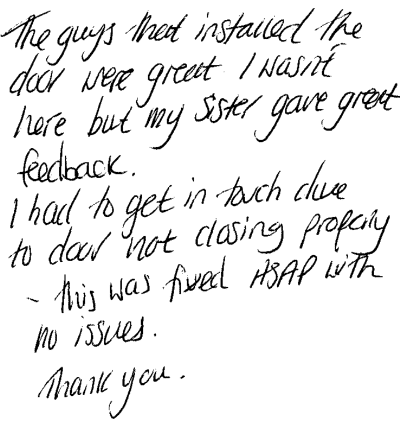 The guys that installed the
door were great I wasn't
here but my sister gave great
feedback.
I had to get in touch due
to door not closing properly
- this was fixed ASAP with
no issues.
Thank you.